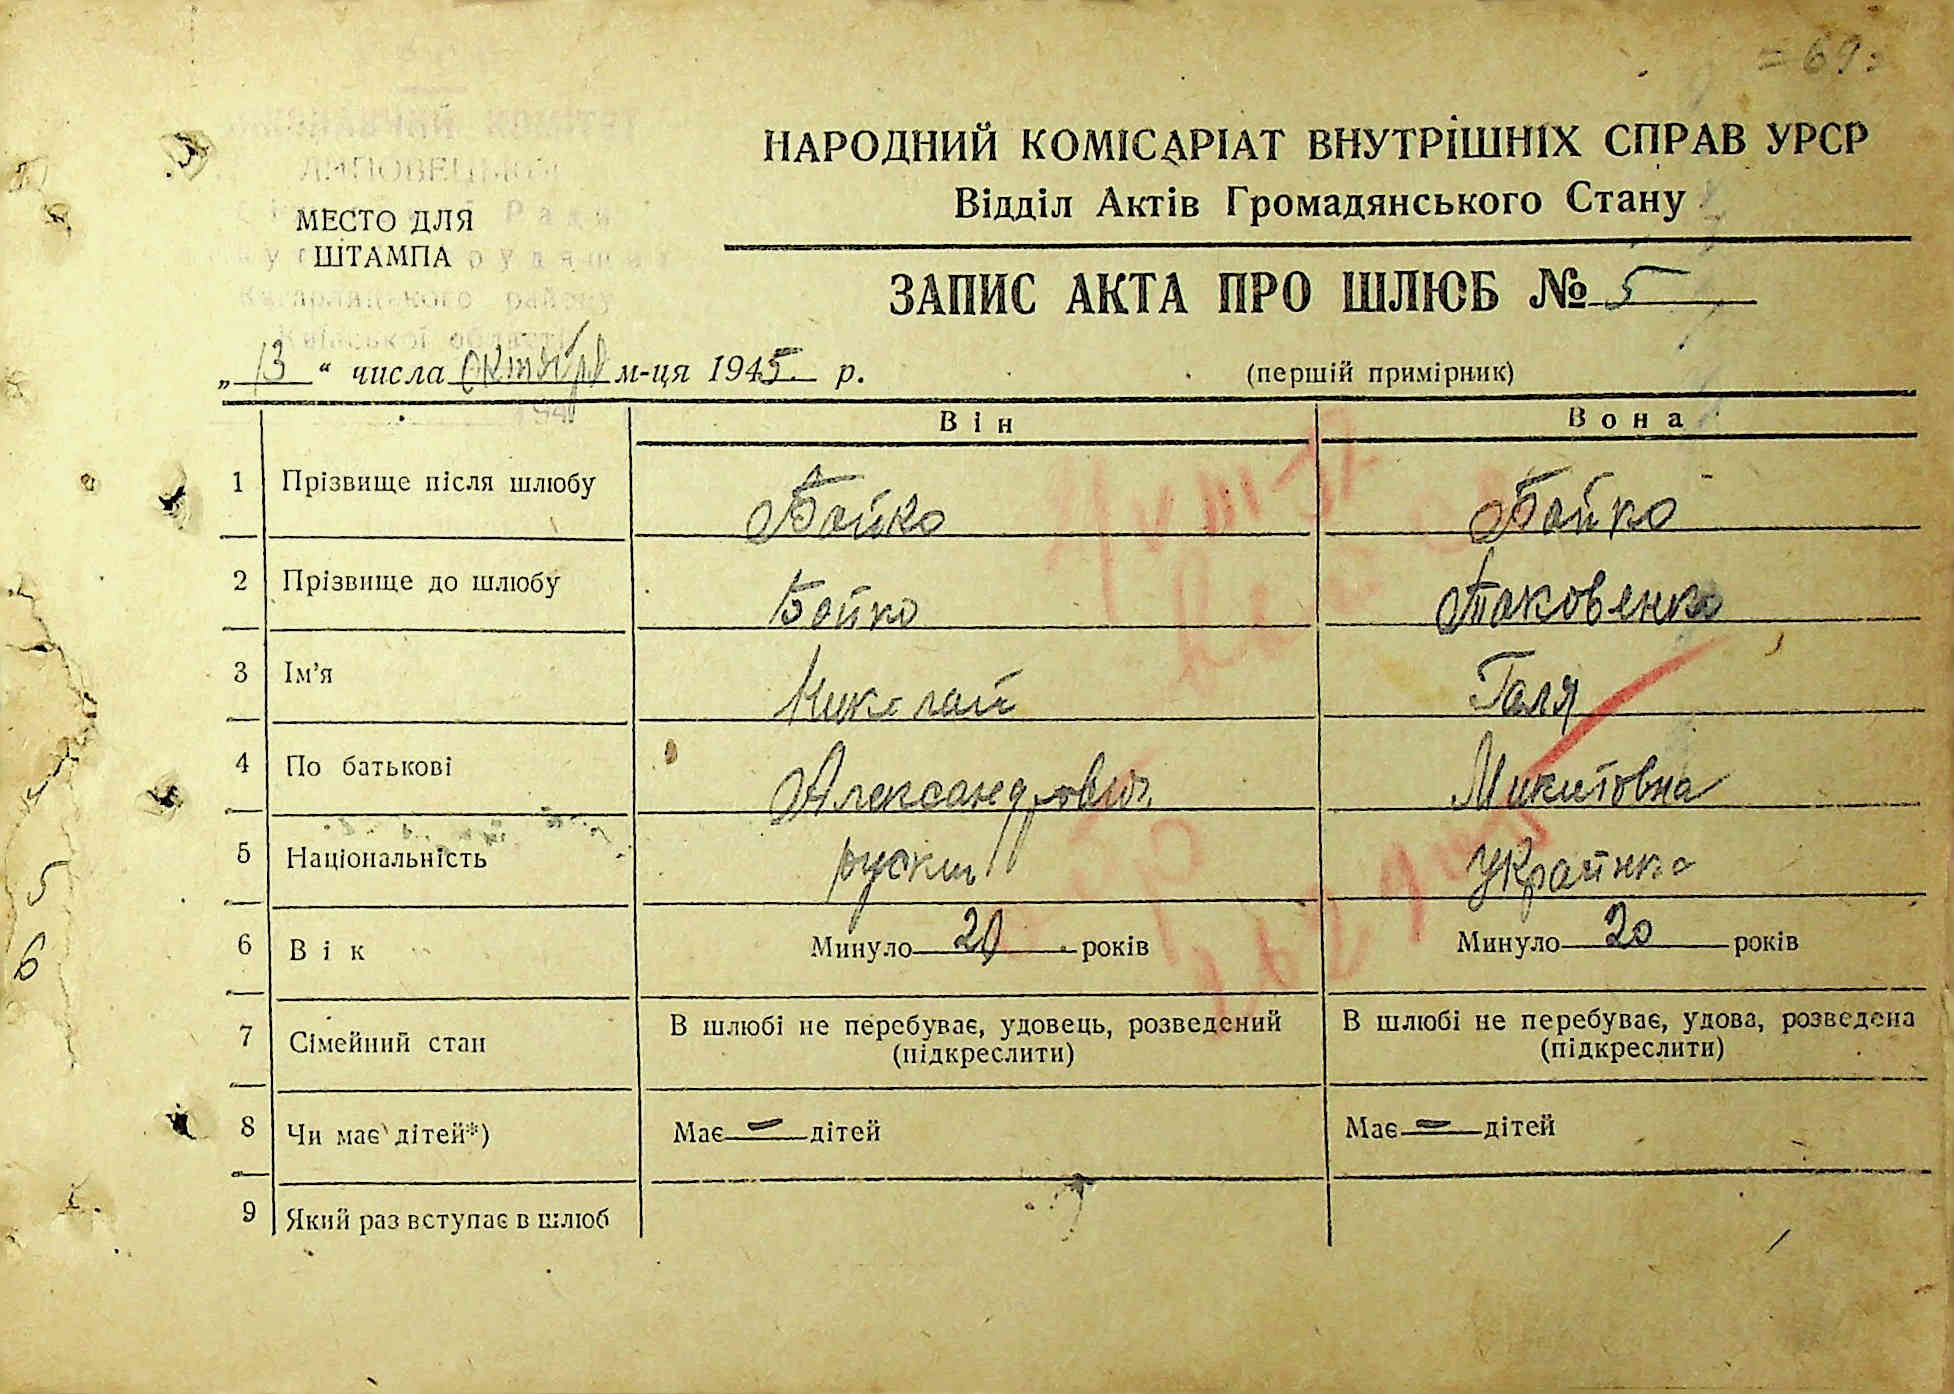 = 69.
НАРОДНИЙ КОМІСАРІАТ ВНУТРІШНІХ СПРАВ УРСР
Відділ Актів Громадянського Стану
МЕСТО ДЛЯ
ШТАМПА
ВИКОНАВЧИЙ КОМІТЕТ
ЛИПОВЕЦЬКОЇ
Кагарлицького району
Київської області
ЗАПИС АКТА ПРО ШЛЮБ № 5
„ 13 “ числа октября м-ця 1945 р.
(перший примірник)
Він Вона
1 Прізвище після шлюбу Бойко Бойко
2 Прізвище до шлюбу Бойко Таковенко
3 Ім’я Николай Галя
4 По батькові Александрович Микитовна
5 Національність руский Украинка
6 Вік Минуло 20 років Минуло 20 років
7 Сімейний стан В шлюбі не перебуває, удовець, розведений (підкреслити) В шлюбі не перебуває, удова, розведена (підкреслити)
8 Чи має дітей*) Має — дітей Має — дітей
9 Який раз вступає в шлюб
5
6